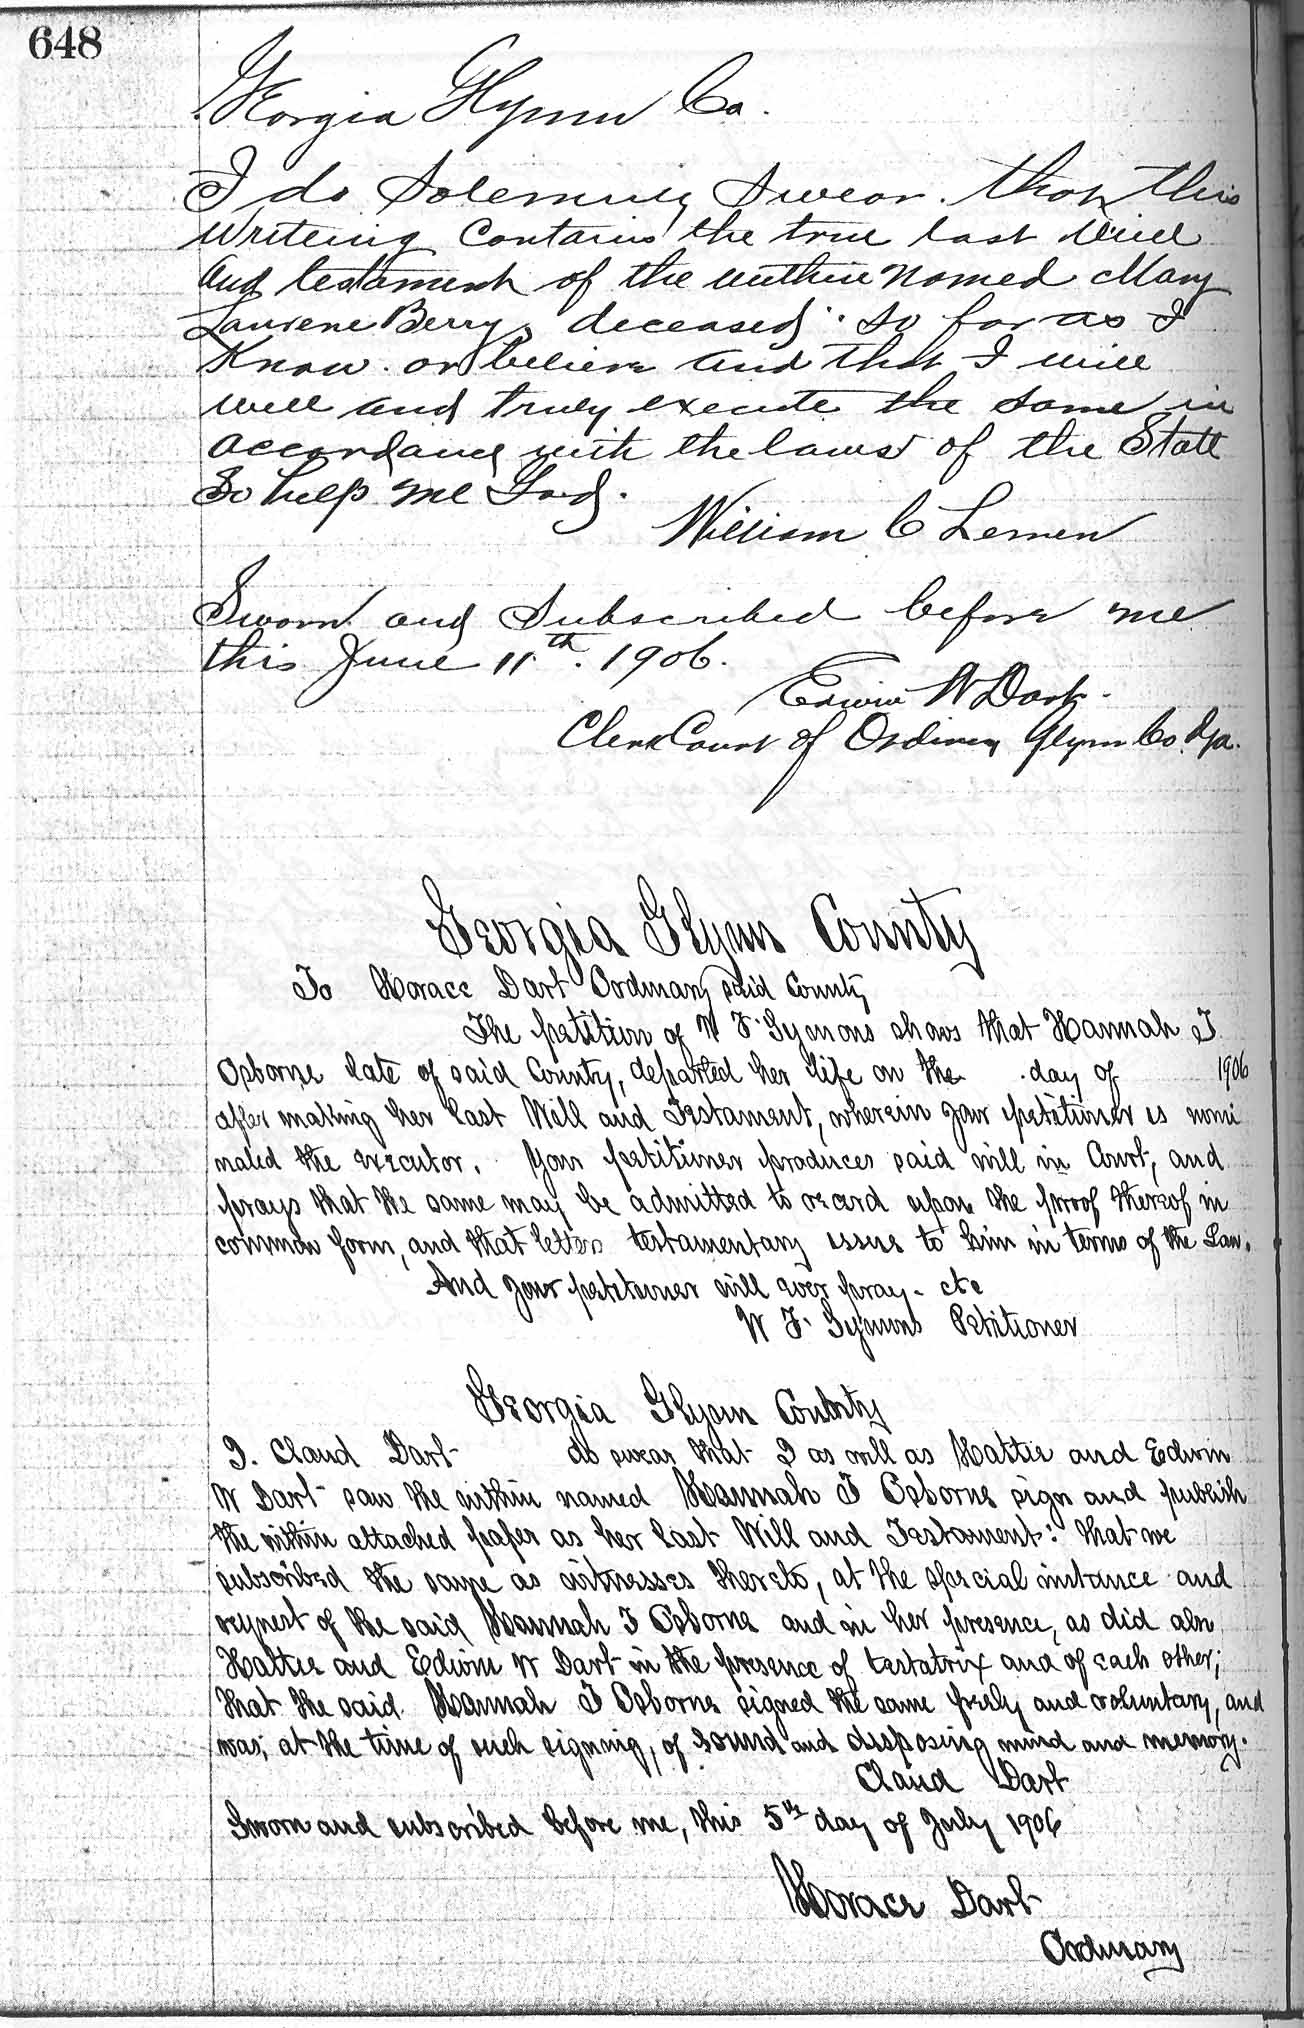 648
Georgia Glynn Co.
I do Solemnly Swear. that this
writing Contains the true last Will
and testament of the within named Mary
Laurene Berry, deceased. so far as I
Know. or believe and that I will
well and truly execute the same in
accordance with the laws of the State
So help me God.
William C Lemen
Sworn and Subscribed before me
this June 11th. 1906.
Edwin W Dart.
Clerk Court of Ordinary Glynn Co. Ga.
Georgia Glynn County
To Horace Dart Ordinary said County
The petition of W F. Symons shows that Hannah I
Osborne late of said County, departed her life on the day of 1906
after making her last Will and Testament, wherein your petitioner is nomi
nated the executor. Your petitioner produces said will in Court, and
prays that the same may be admitted to record upon the proof thereof in
common form, and that letters testamentary issue to him in terms of the Law.
And your petitioner will ever pray- etc
W F. Symons Petitioner
Georgia Glynn County
I. Claud Dart do swear that I as well as Hattie and Edwin
W Dart saw the within named Hannah I Osborne sign and publish
the within attached paper as her last Will and Testament: that we
subscribed the same as witnesses thereto, at the special instance and
request of the said Hannah I Osborne and in her presence, as did also
Hattie and Edwin W Dart in the presence of testatrix and of each other;
that the said Hannah I Osborne signed the same freely and voluntary, and
was, at the time of such signing, of sound and disposing mind and memory.
Claud Dart
Sworn and subscribed before me, this 5th day of July 1906
Horace Dart
Ordinary